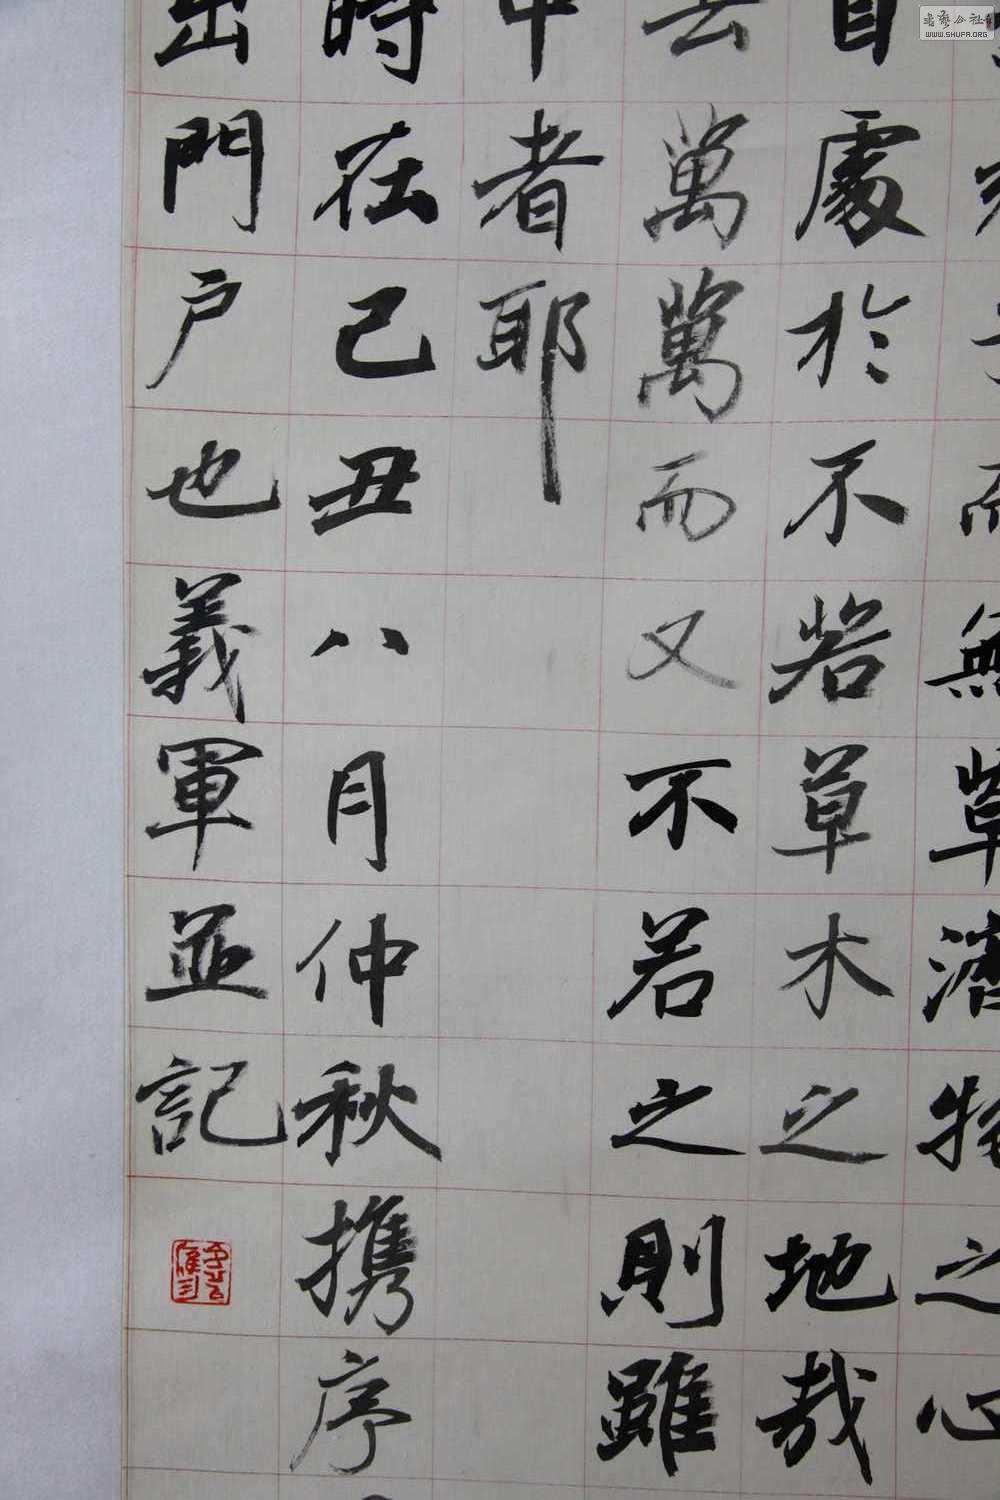 而無草濟物之心
自處於不若草木之地哉
去萬萬而又不若之則雖
中者耶
時在己丑八月仲秋攜序
出門戶也義軍並記
WWW.SHUFA.ORG